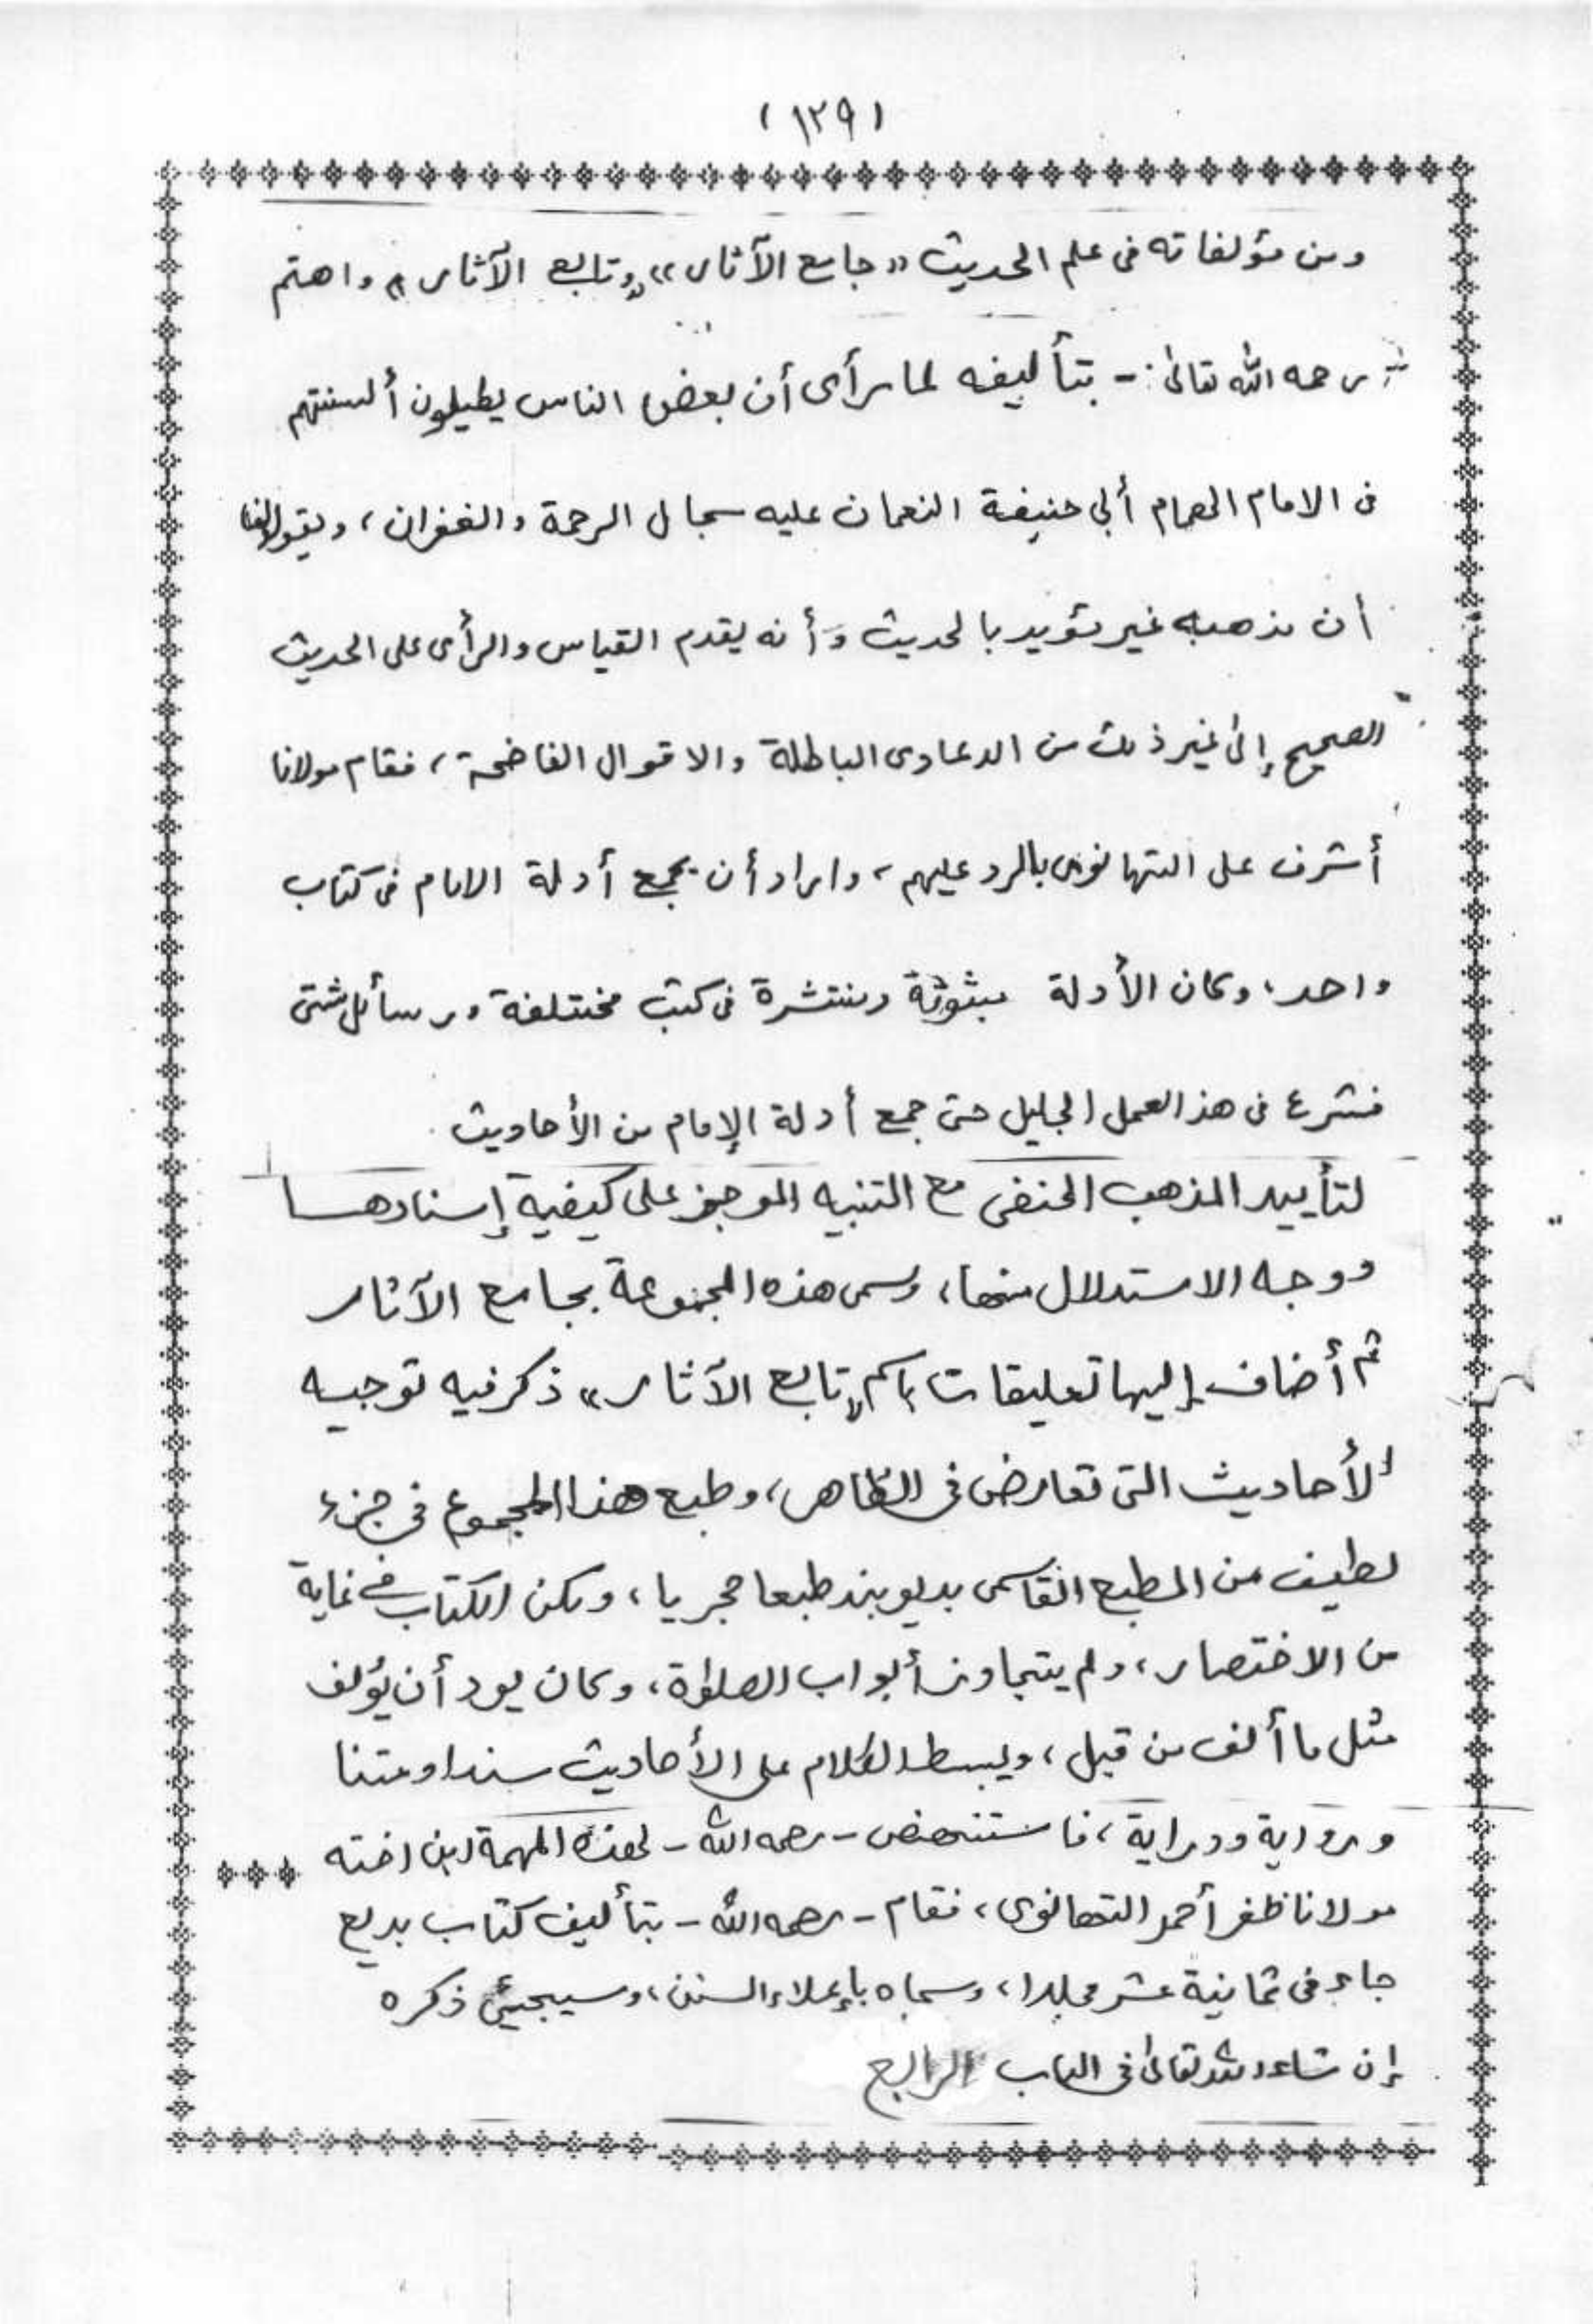 (١٢٩)
ومن مؤلفاته فى علم الحديث «جامع الآثار» و«تابع الآثار» واهتم
رحمه الله تعالىٰ - بتأليفه لما رأى أن بعض الناس يطيلون ألسنتهم
فى الامام الهمام أبي حنيفة النعمان عليه سجال الرحمة والغفران، ويقولون
أن مذهبه غير مؤيد بالحديث وأنه يقدم القياس والرأى على الحديث
الصحيح إلىٰ غير ذلك من الدعاوى الباطلة والاقوال الفاضحة، فقام مولانا
أشرف على التهانوى بالرد عليهم، واراد أن يجمع أدلة الامام فى كتاب
واحد، وكان الأدلة مبثوثة ومنتشرة فى كتب مختلفة ورسائل شتى
فشرع فى هذ العمل الجليل حتى جمع أدلة الإمام من الأحاديث
لتأييد المذهب الحنفى مع التنبيه الموجز على كيفية إسنادها
ووجه الاستدلال منها، وسمى هذه المجموعة بجامع الآثار
ثم أضاف إليها تعليقات باسم «تابع الآثار» ذكر فيه توجيه
الأحاديث التى تعارض فى الظاهر، وطبع هذا المجموع فى جزء
لطيف من المطبع القاسمى بديوبند طبعا حجريا، ولكن الكتاب فى غاية
من الاختصار، ولم يتجاوز أبواب الصلوٰة، وكان يود أن يُؤلف
مثل ما ألف من قبل، ويبسط الكلام على الأحاديث سندا ومتنا
ورواية ودراية، فاستنهض - رحمه الله - لهذه المهمة ابن اخته
مولانا ظفر أحمد التهانوى، فقام - رحمه الله - بتأليف كتاب بديع
جاء فى ثمانية عشر مجلدا، وسماه بإعلاء السنن، وسيجيئ ذكره
إن شاء الله تعالىٰ فى الباب الرابع